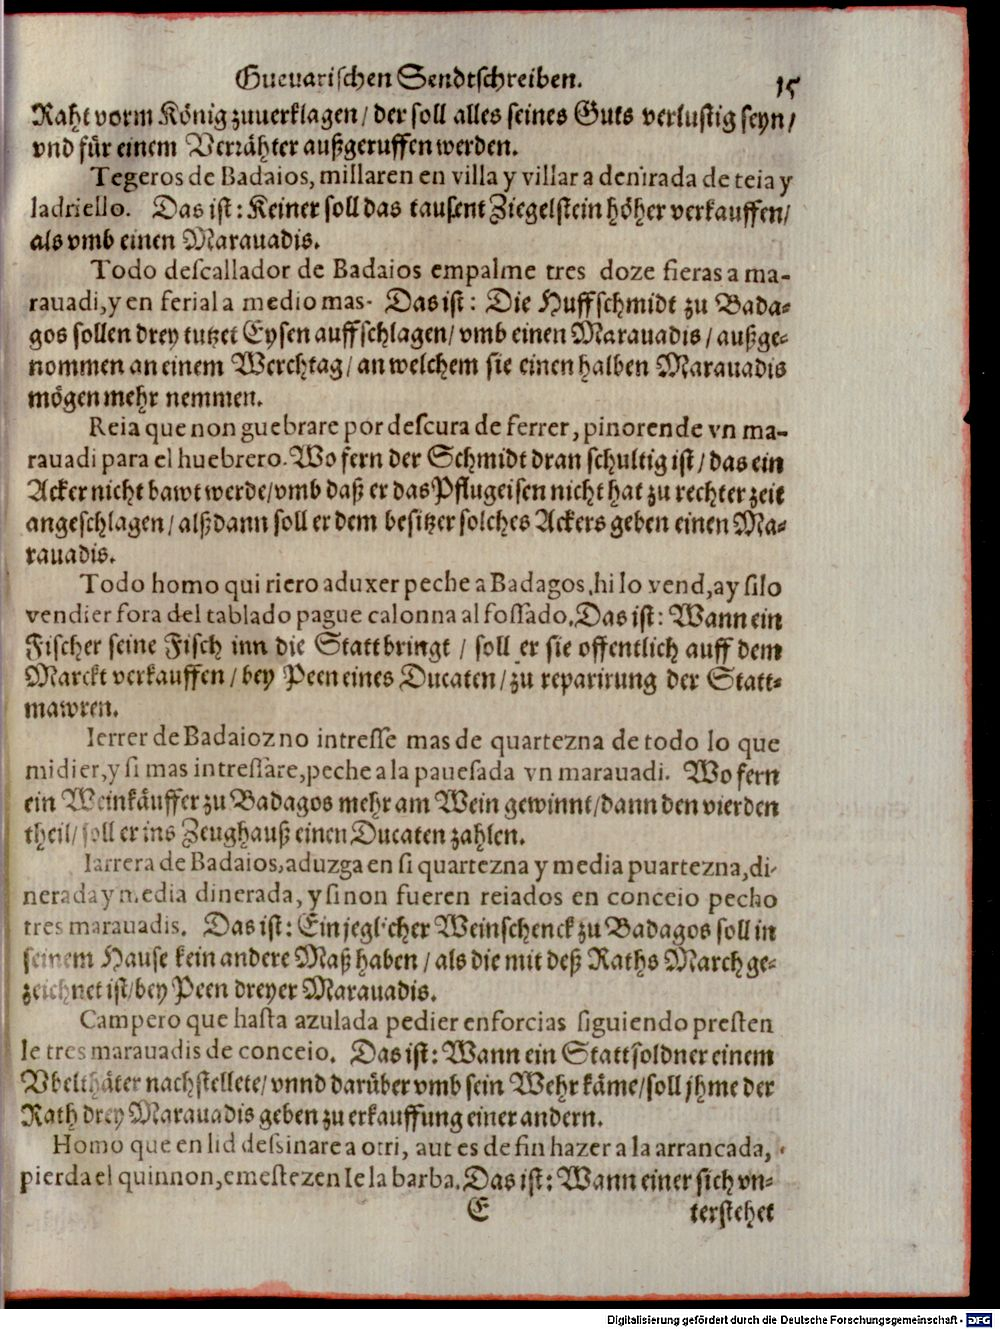 Guevarischen Sendtschreiben. 15
Raht vorm König zuuerklagen / der soll alles seines Guts verlustig seyn /
vnd für einem Verrähter außgeruffen werden.
Tegeros de Badaios, millaren en villa y villar a denirada de teia y
ladriello. Das ist: Keiner soll das tausent Ziegelstein höher verkauffen /
als vmb einen Marauadis.
Todo descallador de Badaios empalme tres doze fieras a ma-
rauadi, y en ferial a medio mas. Das ist: Die Huffschmidt zu Bada-
gos sollen drey tutzet Eysen auffschlagen / vmb einen Marauadis / außge-
nommen an einem Werchtag / an welchem sie einen halben Marauadis
mögen mehr nemmen.
Reia que non guebrare por descura de ferrer, pinorende vn ma-
rauadi para el huebrero. Wo fern der Schmidt dran schultig ist / das ein
Acker nicht bawt werde / vmb daß er das Pflugeisen nicht hat zu rechter zeit
angeschlagen / alßdann soll er dem besitzer solches Ackers geben einen Ma-
rauadis.
Todo homo qui riero aduxer peche a Badagos, hi lo vend, ay si lo
vendier fora del tablado pague calonna al fossado. Das ist: Wann ein
Fischer seine Fisch inn die Statt bringt / soll er sie offentlich auff dem
Marckt verkauffen / bey Peen eines Ducaten / zu reparirung der Statt-
mawren.
Ierrer de Badaioz no intresse mas de quartezna de todo lo que
midier, y si mas intressare, peche a la pauesada vn marauadi. Wo fern
ein Weinkäuffer zu Badagos mehr am Wein gewinnt / dann den vierden
theil / soll er ins Zeughauß einen Ducaten zahlen.
Iarrera de Badaios, aduzga en si quartezna y media puartezna, di-
nerada y media dinerada, y si non fueren reiados en conceio pecho
tres marauadis. Das ist: Ein jeglicher Weinschenck zu Badagos soll in
seinem Hause kein andere Maß haben / als die mit deß Raths March ge-
zeichnet ist / bey Peen dreyer Marauadis.
Campero que hasta azulada pedier enforcias siguiendo presten
le tres marauadis de conceio. Das ist: Wann ein Stattsoldner einem
Vbelthäter nachstellete / vnnd darüber vmb sein Wehr käme / soll jhme der
Rath drey Marauadis geben zu erkauffung einer andern.
Homo que en lid dessinare a otri, aut es de fin hazer a la arrancada,
pierda el quinnon, e mestezen le la barba. Das ist: Wann einer sich vn-
E terstehet
Digitalisierung gefördert durch die Deutsche Forschungsgemeinschaft - DFG